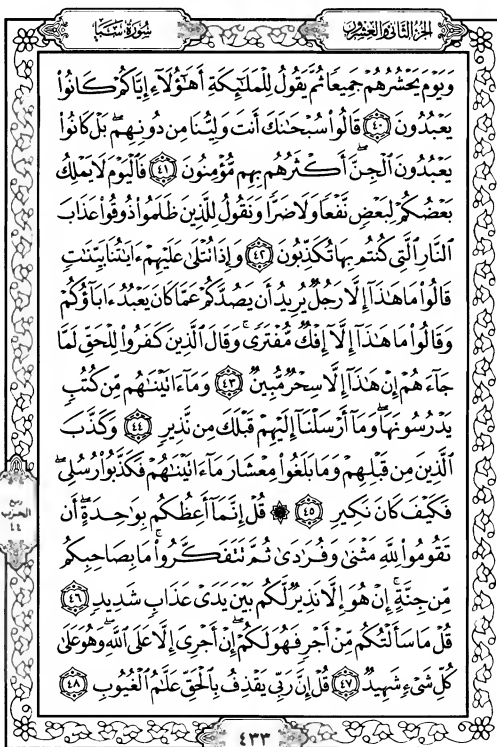 الجزء الثاني والعشرون
سُورَةُ سَبَإٍ
وَيَوْمَ يَحْشُرُهُمْ جَمِيعًا ثُمَّ يَقُولُ لِلْمَلَٰٓئِكَةِ أَهَٰٓؤُلَآءِ إِيَّاكُمْ كَانُوا۟
يَعْبُدُونَ ٤٠ قَالُوا۟ سُبْحَٰنَكَ أَنتَ وَلِيُّنَا مِن دُونِهِم ۖ بَلْ كَانُوا۟
يَعْبُدُونَ ٱلْجِنَّ ۖ أَكْثَرُهُم بِهِم مُّؤْمِنُونَ ٤١ فَٱلْيَوْمَ لَا يَمْلِكُ
بَعْضُكُمْ لِبَعْضٍ نَّفْعًا وَلَا ضَرًّا وَنَقُولُ لِلَّذِينَ ظَلَمُوا۟ ذُوقُوا۟ عَذَابَ
ٱلنَّارِ ٱلَّتِى كُنتُم بِهَا تُكَذِّبُونَ ٤٢ وَإِذَا تُتْلَىٰ عَلَيْهِمْ ءَايَٰتُنَا بَيِّنَٰتٍ
قَالُوا۟ مَا هَٰذَآ إِلَّا رَجُلٌ يُرِيدُ أَن يَصُدَّكُمْ عَمَّا كَانَ يَعْبُدُ ءَابَآؤُكُمْ
وَقَالُوا۟ مَا هَٰذَآ إِلَّآ إِفْكٌ مُّفْتَرًى ۚ وَقَالَ ٱلَّذِينَ كَفَرُوا۟ لِلْحَقِّ لَمَّا
جَآءَهُمْ إِنْ هَٰذَآ إِلَّا سِحْرٌ مُّبِينٌ ٤٣ وَمَآ ءَاتَيْنَٰهُم مِّن كُتُبٍ
يَدْرُسُونَهَا ۖ وَمَآ أَرْسَلْنَآ إِلَيْهِمْ قَبْلَكَ مِن نَّذِيرٍ ٤٤ وَكَذَّبَ
ٱلَّذِينَ مِن قَبْلِهِمْ وَمَا بَلَغُوا۟ مِعْشَارَ مَآ ءَاتَيْنَٰهُمْ فَكَذَّبُوا۟ رُسُلِى ۖ
فَكَيْفَ كَانَ نَكِيرِ ٤٥ ۞ قُلْ إِنَّمَآ أَعِظُكُم بِوَٰحِدَةٍ ۖ أَن
تَقُومُوا۟ لِلَّهِ مَثْنَىٰ وَفُرَٰدَىٰ ثُمَّ تَتَفَكَّرُوا۟ ۚ مَا بِصَاحِبِكُم
مِّن جِنَّةٍ ۚ إِنْ هُوَ إِلَّا نَذِيرٌ لَّكُم بَيْنَ يَدَىْ عَذَابٍ شَدِيدٍ ٤٦
قُلْ مَا سَأَلْتُكُم مِّنْ أَجْرٍ فَهُوَ لَكُمْ ۖ إِنْ أَجْرِىَ إِلَّا عَلَى ٱللَّهِ ۖ وَهُوَ عَلَىٰ
كُلِّ شَىْءٍ شَهِيدٌ ٤٧ قُلْ إِنَّ رَبِّى يَقْذِفُ بِٱلْحَقِّ عَلَّٰمُ ٱلْغُيُوبِ ٤٨
ربع
الحزب
٤٤
٤٣٣